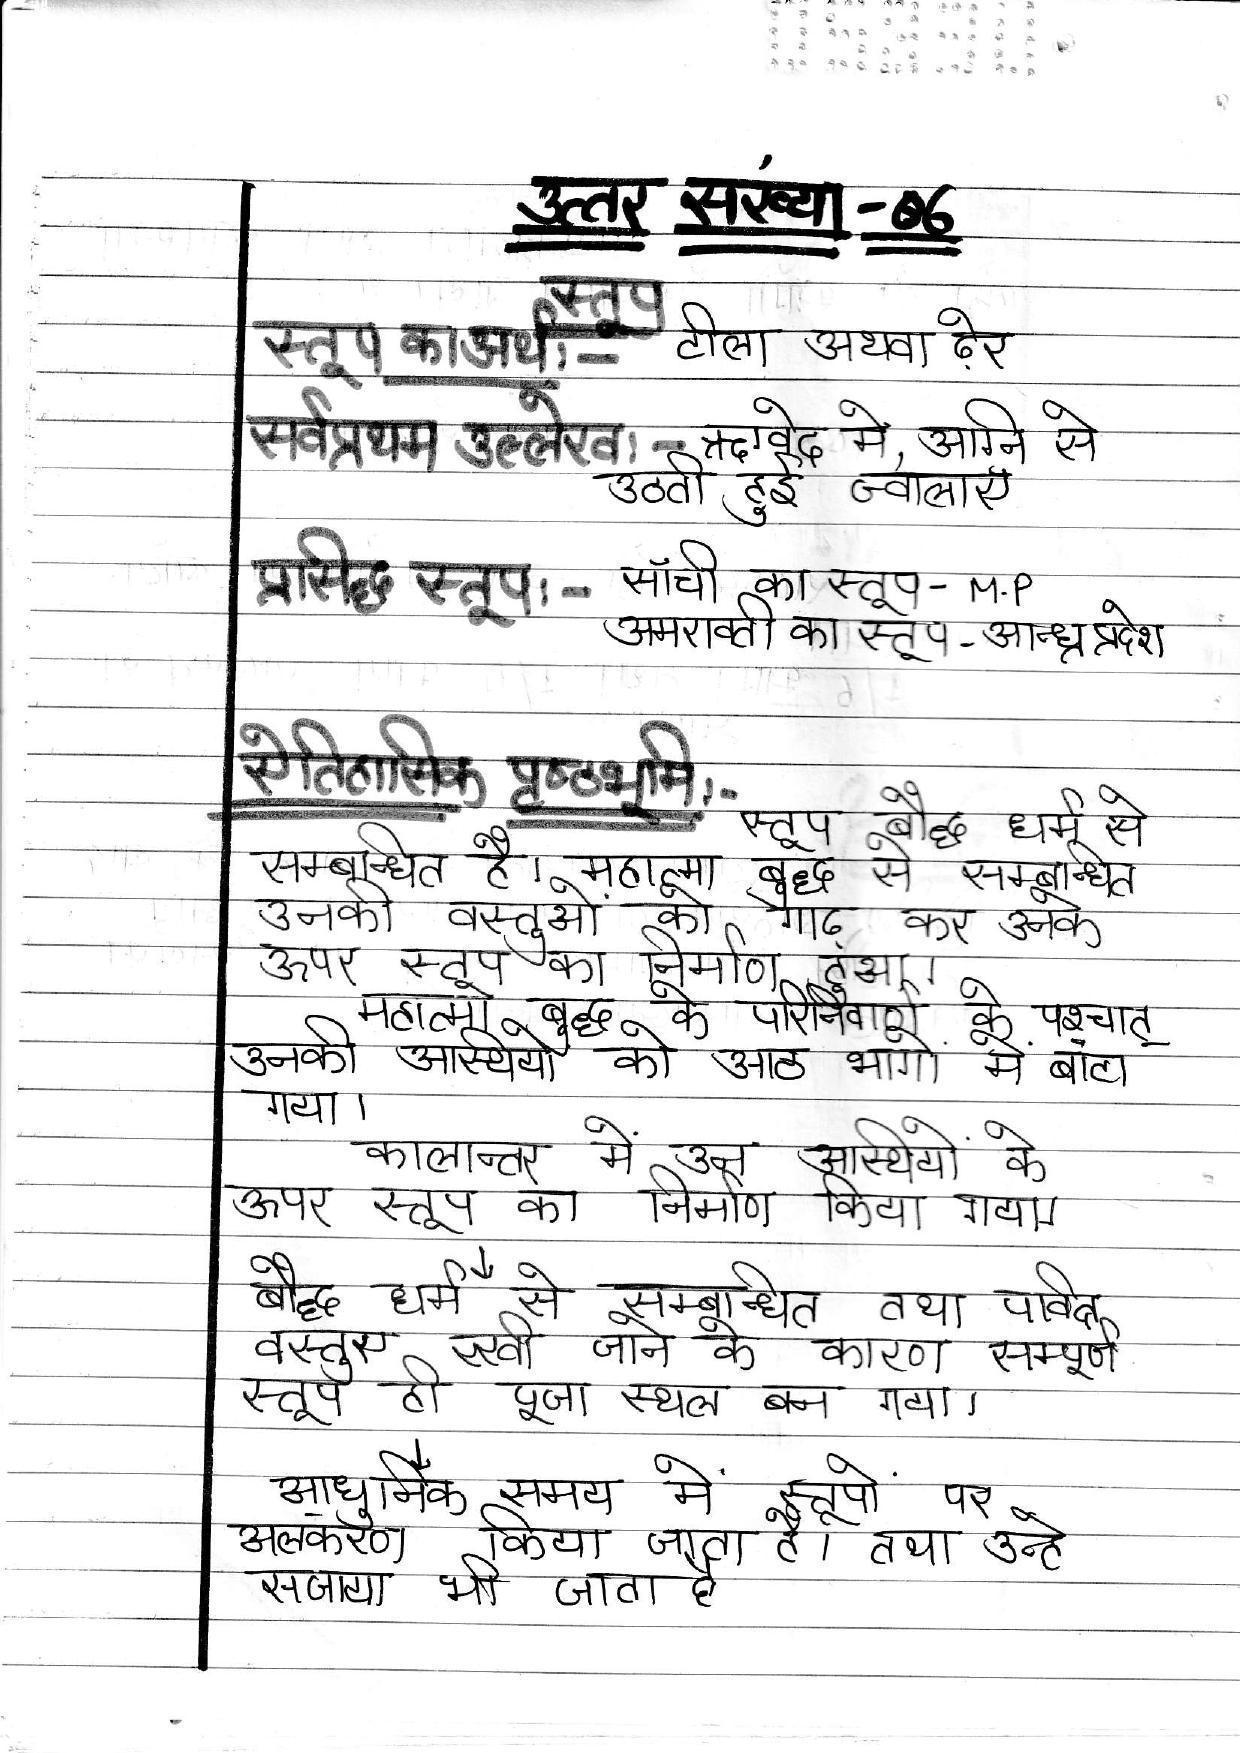 उत्तर संख्या - 06
स्तूप
स्तूप का अर्थ :- टीला अथवा ढ़ेर
सर्वप्रथम उल्लेख :- ऋग्वेद में, अग्नि से
उठती हुई ज्वालाएँ
प्रसिद्ध स्तूप :- साँची का स्तूप - M.P
अमरावती का स्तूप - आन्ध्र प्रदेश
ऐतिहासिक पृष्ठभूमि :-
स्तूप बौद्ध धर्म से
सम्बन्धित है। महात्मा बुद्ध से सम्बन्धित
उनकी वस्तुओं को गाढ़ कर उनके
ऊपर स्तूप का निर्माण हुआ।
महात्मा बुद्ध के परिनिर्वाण के पश्चात्
उनकी अस्थियों को आठ भागों में बांटा
गया।
कालान्तर में उन अस्थियों के
ऊपर स्तूप का निर्माण किया गया।
↓
बौद्ध धर्म से सम्बन्धित तथा पवित्र
वस्तुए रखी जाने के कारण सम्पूर्ण
स्तूप ही पूजा स्थल बन गया।
↓
आधुनिक समय में स्तूपों पर
अलंकरण किया जाता है। तथा उन्हे
सजाया भी जाता है